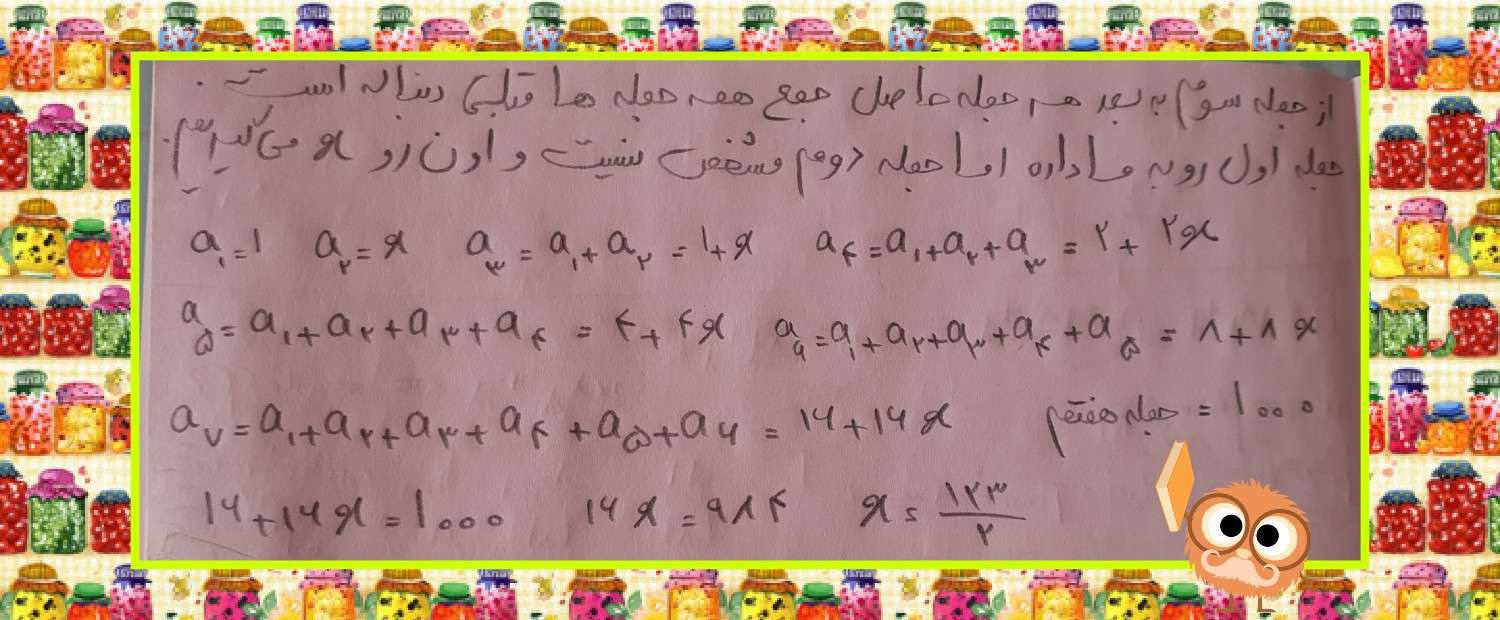 از جمله سوم به بعد هر جمله حاصل جمع همه جمله ها قبلی دنباله است .
جمله اول رو به ما داره اما جمله دوم مشخص نیست و اون رو x می‌گیریم.
a₁ = ۱   a₂ = x   a₃ = a₁ + a₂ = ۱ + x   a₄ = a₁ + a₂ + a₃ = ۲ + ۲x
a₅ = a₁ + a₂ + a₃ + a₄ = ۴ + ۴x   a₆ = a₁ + a₂ + a₃ + a₄ + a₅ = ۸ + ۸x
a₇ = a₁ + a₂ + a₃ + a₄ + a₅ + a₆ = ۱۶ + ۱۶x   جمله هفتم = ۱۰۰۰
۱۶ + ۱۶x = ۱۰۰۰   ۱۶x = ۹۸۴   x = ۱۲۳/۲